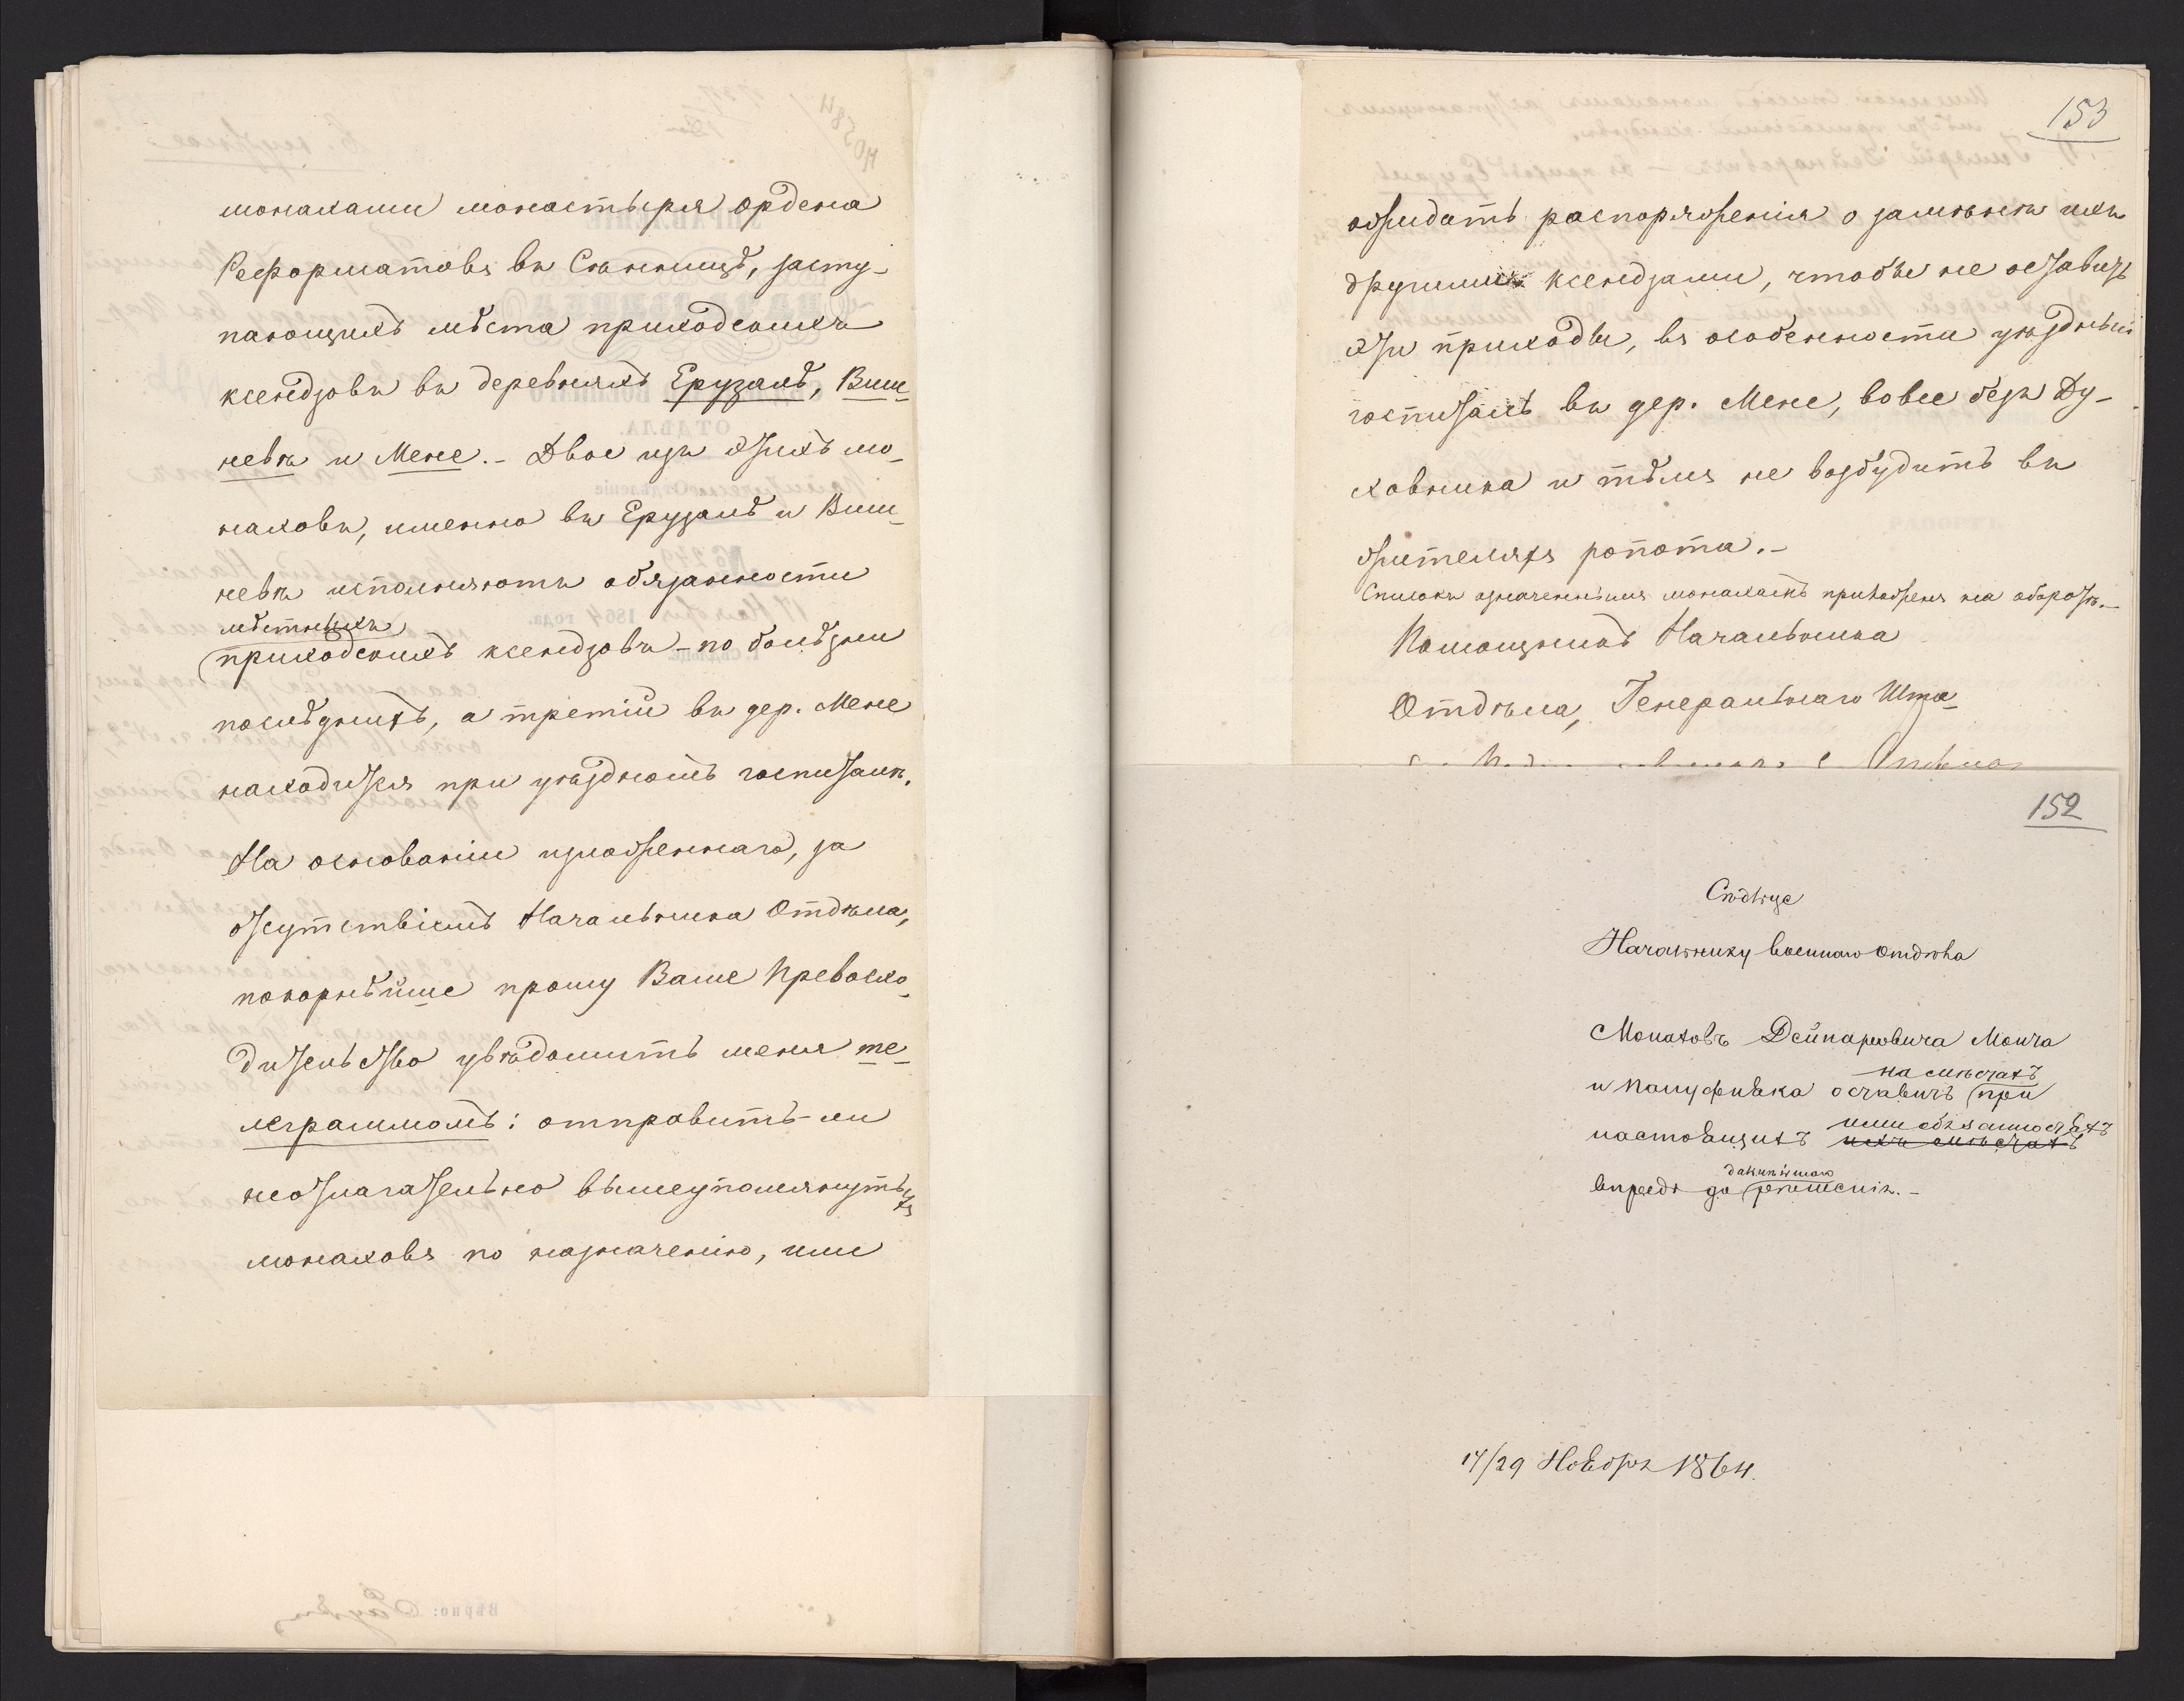 монахами монастыря ордена
Реформатовъ въ Сѣнницѣ, засту-
пающихъ мѣста приходскихъ
ксендзовъ въ деревняхъ Ерузалѣ, Виш-
невѣ и Мене. - Двое изъ этихъ мо-
наховъ, именно въ Ерузалѣ и Виш-
невѣ исполняютъ обязанности
мѣстныхъ
приходскихъ ксендзовъ - по болѣзни
послѣднихъ, а третій въ дер. Мене
находится при уѣздномъ госпиталѣ.
На основаніи изложеннаго, за
отсутствіемъ Начальника Отдѣла,
покорнѣйше прошу Ваше Превосхо-
дительство увѣдомить меня те-
леграммомъ: отправить-ли
неотлагательно вышеупомянутыхъ
монаховъ по назначенію, или
153
ожидать распоряженія о замѣнѣ ихъ
другими ксендзами, чтобы не оставить
эти приходы, въ особенности уѣздный
госпиталь въ дер. Мене, вовсе безъ Ду-
ховника и тѣмъ не возбудить въ
жителяхъ ропота. -
Списокъ означеннымъ монахамъ приложенъ на оборотѣ. -
Помощникъ Начальника
Отдѣла, Генеральнаго Шта-
152
Сѣдльце
Начальнику Военнаго Отдѣла
Монаховъ Дейнаровича Монча
на мѣстахъ
и Пануфника оставить при
ими обязанностяхъ
настоящихъ ихъ мѣстахъ
впредь до рѣшенія. -
17/29 Ноября 1864.